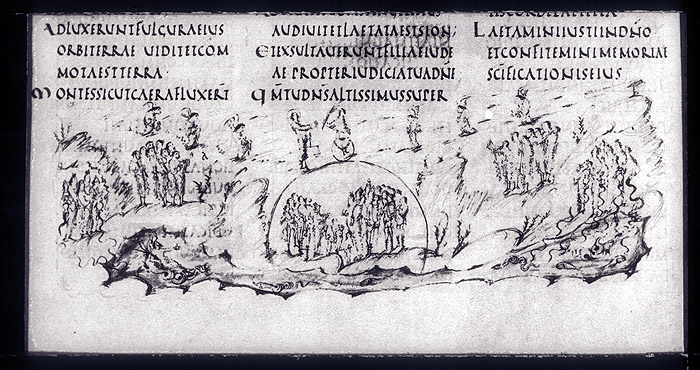 ADLUXERUNTFULGURAEIUS
ORBITERRAE UIDITETCOM
MOTAESTTERRA·
MONTESSICUTCAERAFLUXERT
AUDIUITETLAETATAESTSION;
ETEXSULTAUERUNTFILIAEIUDE
AE PROPTERIUDICIATUADNE
QMTUDNSALTISSIMUSSUPER
LAETAMINIIUSTIINDNO
ETCONFITEMINIMEMORIAE
SCIFICATIONISEIUS